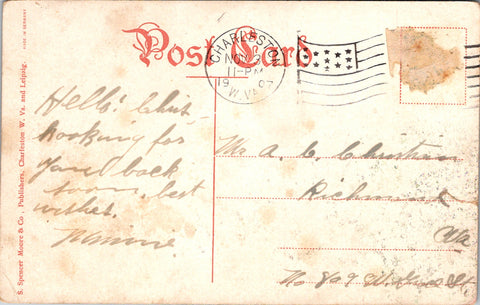 Post Card
MADE IN GERMANY
S. Spencer Moore & Co., Publishers, Charleston W. Va. and Leipzig.
CHARLESTON
NOV 2
11-PM
1907
W.VA.
Hello! Christ
Looking for
you back
soon, best
wishes.
Minnie
Mr A. C. Christian
Richmond
Va
No 809 W.